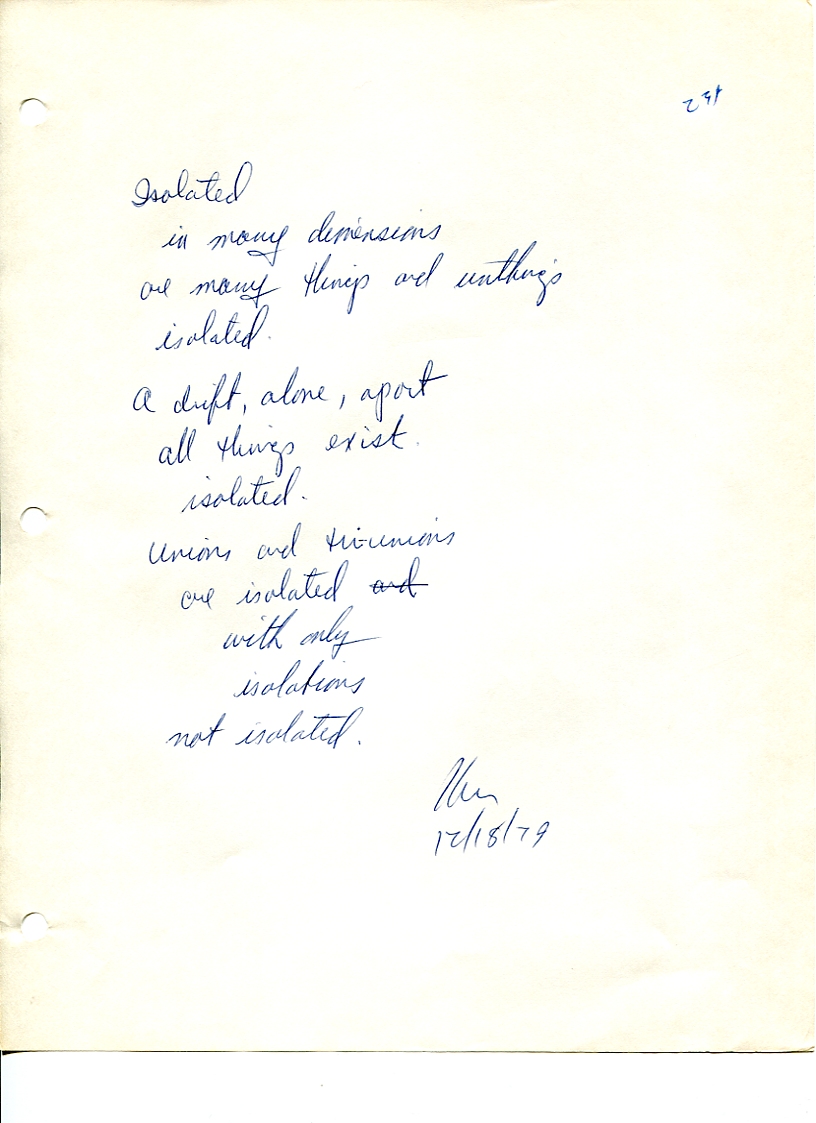 Isolated
in many dimensions
are many things and unthings
isolated.
A drift, alone, apart
all things exist.
isolated.
Unions and tri-unions
are isolated and
with only
isolations
not isolated.
12/18/79